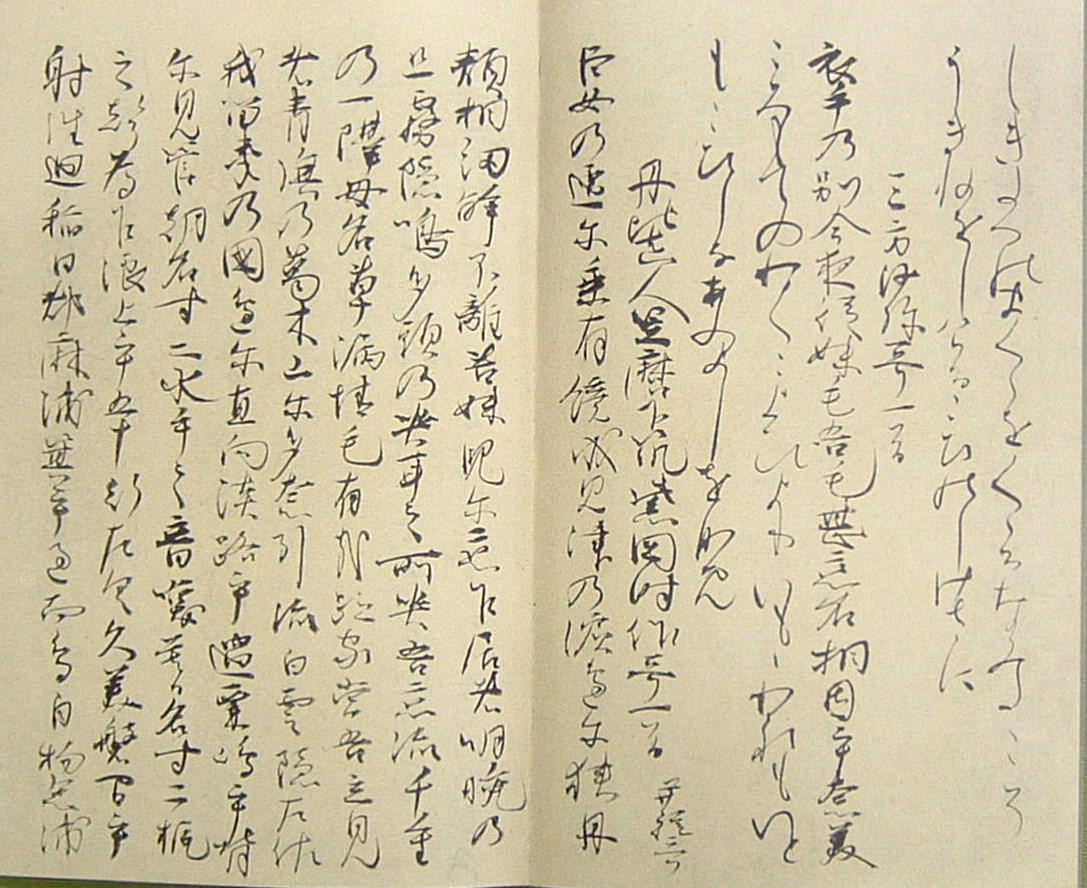 しきたへのまくらをくくるなみたこそ
うきねをしけるこひのしけきに
三方沙弥哥一首
衣手乃別今夜従妹毛吾毛甚戀名相因乎奈美
ころもてのわくるこよひよりいもゝわれもいと
もこひしなあふよしをなみ
丹比真人笠麿下筑紫國時作哥一首 并短哥
臣女乃匣尓乗有鏡成見津乃濱邊尓狭丹
頬相紐解不離吾妹兒尓戀乍居者明晩乃
旦霧隠鳴多頭乃哭耳之所哭吾戀流千重
乃一隔母名草漏情毛有哉跡家當吾立見
者青旗乃葛木山尓多奈引流白雲隠天佐
我留夷乃國邊尓直向淡路乎過粟嶋乎背
尓見管朝名寸二水手之音喚暮名寸二梶
之聲為乍浪上乎五十行左具久美磐間乎
射往廻稲日都麻浦箕乎過而鳥自物魚